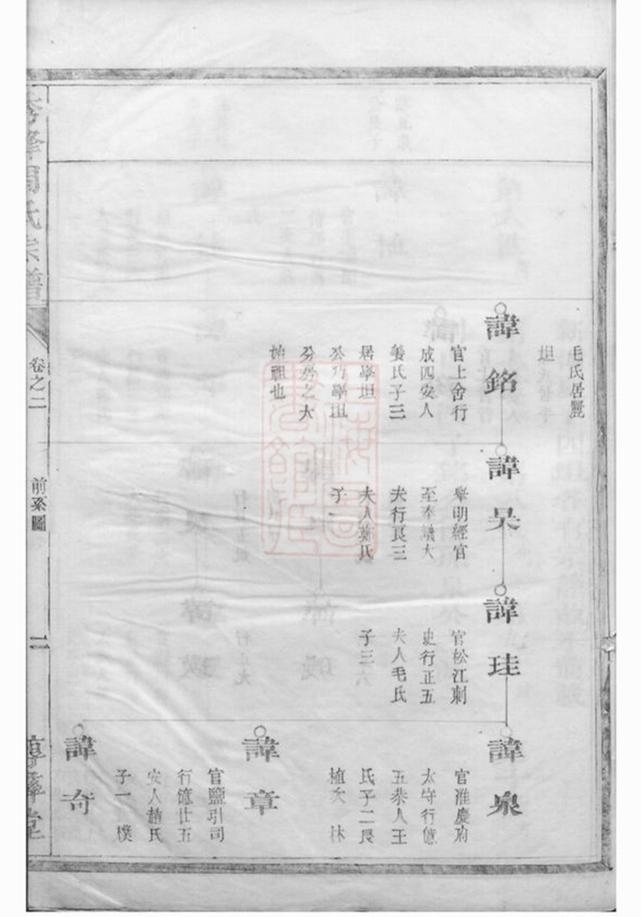 毛氏居豐
坦
諱銘
官上舍行
成四安人
姜氏子三
居學坦
始祖也
諱杲
舉明經官
至奉議大
夫行良三
夫人鄭氏
子一
諱珪
官松江刺
史行正五
夫人毛氏
子三
諱泉
官淮慶府
太守行億
五恭人王
氏子二長
植次林
諱章
官鹽引司
行億廿五
安人趙氏
子一樸
諱奇
周氏宗譜
卷之二
前系圖
二